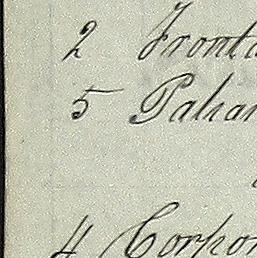 2 Fronta
5 Pahar
4 Corpor